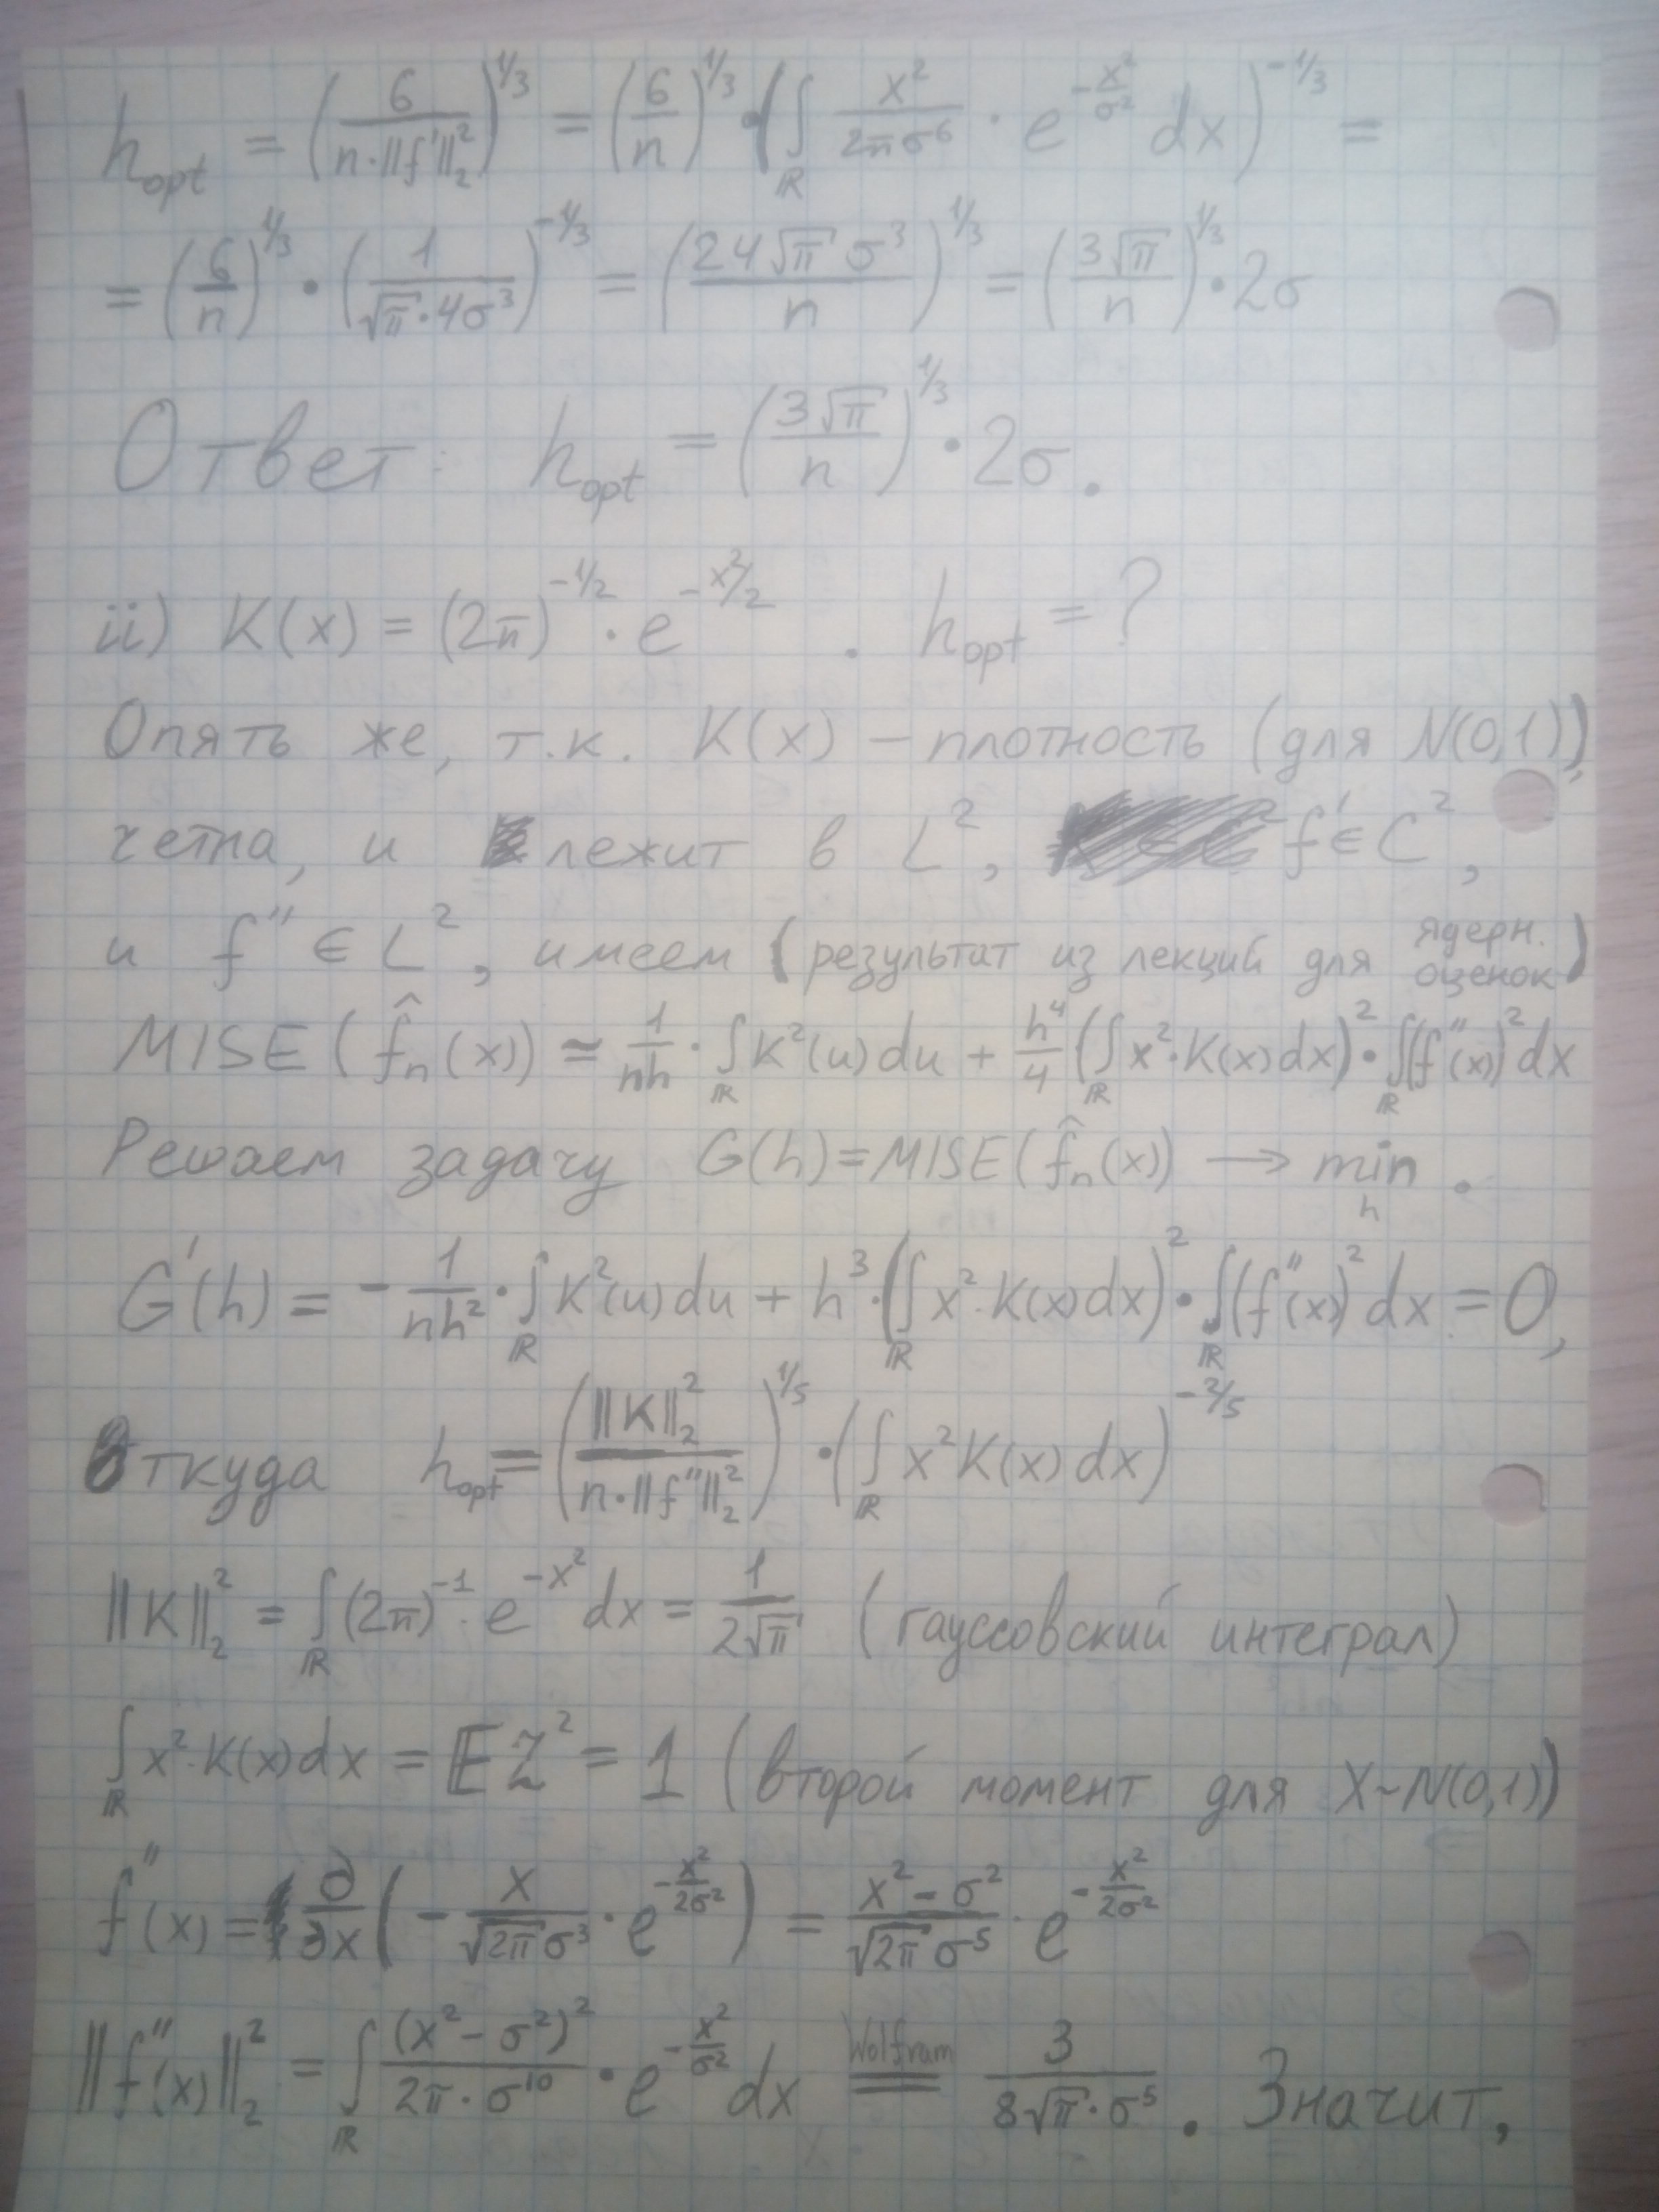 h_opt = (6 / (n·||f'||₂²))^{1/3} = (6/n)^{1/3} · (∫_ℝ x²/(2πσ⁶) · e^{-x²/σ²} dx)^{-1/3} =
= (6/n)^{1/3} · (1/(√π·4σ³))^{-1/3} = (24√π σ³ / n)^{1/3} = (3√π / n)^{1/3} · 2σ
Ответ: h_opt = (3√π / n)^{1/3} · 2σ.
ii) K(x) = (2π)^{-1/2} · e^{-x²/2} . h_opt = ?
Опять же, т.к. K(x) – плотность (для N(0,1)),
четна, и лежит в L², f' ∈ C²,
и f'' ∈ L², имеем (результат из лекций для ядерн. оценок)
MISE(f̂ₙ(x)) ≃ 1/(nh) · ∫_ℝ K²(u)du + h⁴/4 (∫_ℝ x²·K(x)dx)² · ∫_ℝ (f''(x))² dx
Решаем задачу G(h) = MISE(f̂ₙ(x)) → min_h .
G'(h) = -1/(nh²) · ∫_ℝ K²(u)du + h³ · (∫_ℝ x²·K(x)dx)² · ∫_ℝ (f''(x))² dx = 0,
Откуда h_opt = (||K||₂² / (n·||f''||₂²))^{1/5} · (∫_ℝ x²K(x)dx)^{-2/5}
||K||₂² = ∫_ℝ (2π)^{-1} · e^{-x²} dx = 1/(2√π) (гауссовский интеграл)
∫_ℝ x²·K(x)dx = EZ² = 1 (второй момент для X~N(0,1))
f''(x) = ∂/∂x (- x/(√2π σ³) · e^{-x²/(2σ²)}) = (x² - σ²)/(√2π σ⁵) · e^{-x²/(2σ²)}
||f''(x)||₂² = ∫_ℝ (x² - σ²)²/(2π·σ¹⁰) · e^{-x²/σ²} dx =^{Wolfram} 3/(8√π·σ⁵) . Значит,